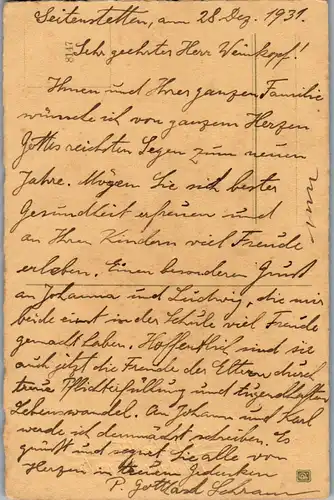 Seitenstetten, am 28. Dez. 1931.
8147
Sehr geehrter Herr Weinkopf!
Ihnen und Ihrer ganzen Familie
wünsche ich von ganzem Herzen
Gottes reichsten Segen zum neuen
Jahre. Mögen Sie sich bester
Gesundheit erfreuen und
an Ihren Kindern viel Freude
erleben. Einen besonderen Gruß
an Johanna und Ludwig, die mir
beide einst in der Schule viel Freude
gemacht haben. Hoffentlich sind sie
auch jetzt die Freude der Eltern durch
treue Pflichterfüllung und tugendhaften
Lebenswandel. An Johann und Karl
werde ich demnächst schreiben. Es
grüßt und segnet Sie alle von
Herzen in treuem Gedenken
P. Gotthard